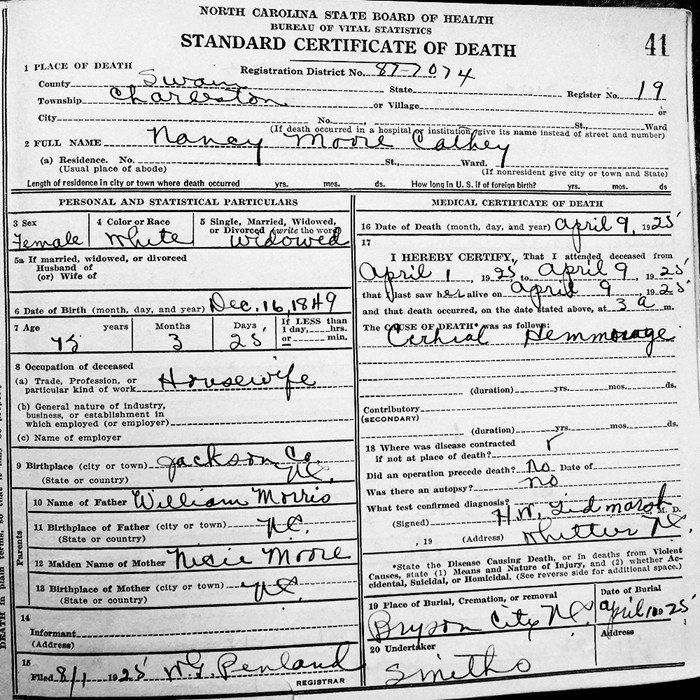 NORTH CAROLINA STATE BOARD OF HEALTH
BUREAU OF VITAL STATISTICS
STANDARD CERTIFICATE OF DEATH
41
1 PLACE OF DEATH
Registration District No. 87-7074
County Swain State Register No. 19
Township Charleston or Village or
City No. St., Ward
(If death occurred in a hospital or institution, give its name instead of street and number)
2 FULL NAME Nancy Moore Cathey
(a) Residence. No. St., Ward.
(Usual place of abode) (If nonresident give city or town and State)
Length of residence in city or town where death occurred yrs. mos. ds. How long in U. S. if of foreign birth? yrs. mos. ds.
PERSONAL AND STATISTICAL PARTICULARS
3 Sex 4 Color or Race 5 Single, Married, Widowed, or Divorced (write the word)
Female White Widowed
5a If married, widowed, or divorced
Husband of
(or) Wife of
6 Date of Birth (month, day, and year) Dec. 16, 1849
7 Age years Months Days If LESS than 1 day, hrs. or min.
75 3 25
8 Occupation of deceased
(a) Trade, Profession, or particular kind of work Housewife
(b) General nature of industry, business, or establishment in which employed (or employer)
(c) Name of employer
9 Birthplace (city or town) Jackson Co.
(State or country) N.C.
Parents
10 Name of Father William Morris
11 Birthplace of Father (city or town) N.C.
(State or country)
12 Maiden Name of Mother Nicie Moore
13 Birthplace of Mother (city or town) N.C.
(State or country)
14
Informant
(Address)
15
Filed 8/1 1925 W.G. Penland
REGISTRAR
MEDICAL CERTIFICATE OF DEATH
16 Date of Death (month, day, and year) April 9, 1925
17
I HEREBY CERTIFY, That I attended deceased from
April 1, 1925 to April 9, 1925
that I last saw her alive on April 9 1925
and that death occurred, on the date stated above, at 3 a m.
The CAUSE OF DEATH* was as follows:
Hemmorage
(duration) yrs. mos. ds.
Contributory
(SECONDARY)
(duration) yrs. mos. ds.
18 Where was disease contracted
if not at place of death?
Did an operation precede death? No Date of
Was there an autopsy? No
What test confirmed diagnosis?
(Signed) H.W. M. D.
, 19 (Address) Whittier N.C.
*State the Disease Causing Death, or in deaths from Violent
Causes, state (1) Means and Nature of Injury, and (2) whether Ac-
cidental, Suicidal, or Homicidal. (See reverse side for additional space.)
19 Place of Burial, Cremation, or removal Date of Burial
Bryson City N.C. April 10 1925
20 Undertaker Address